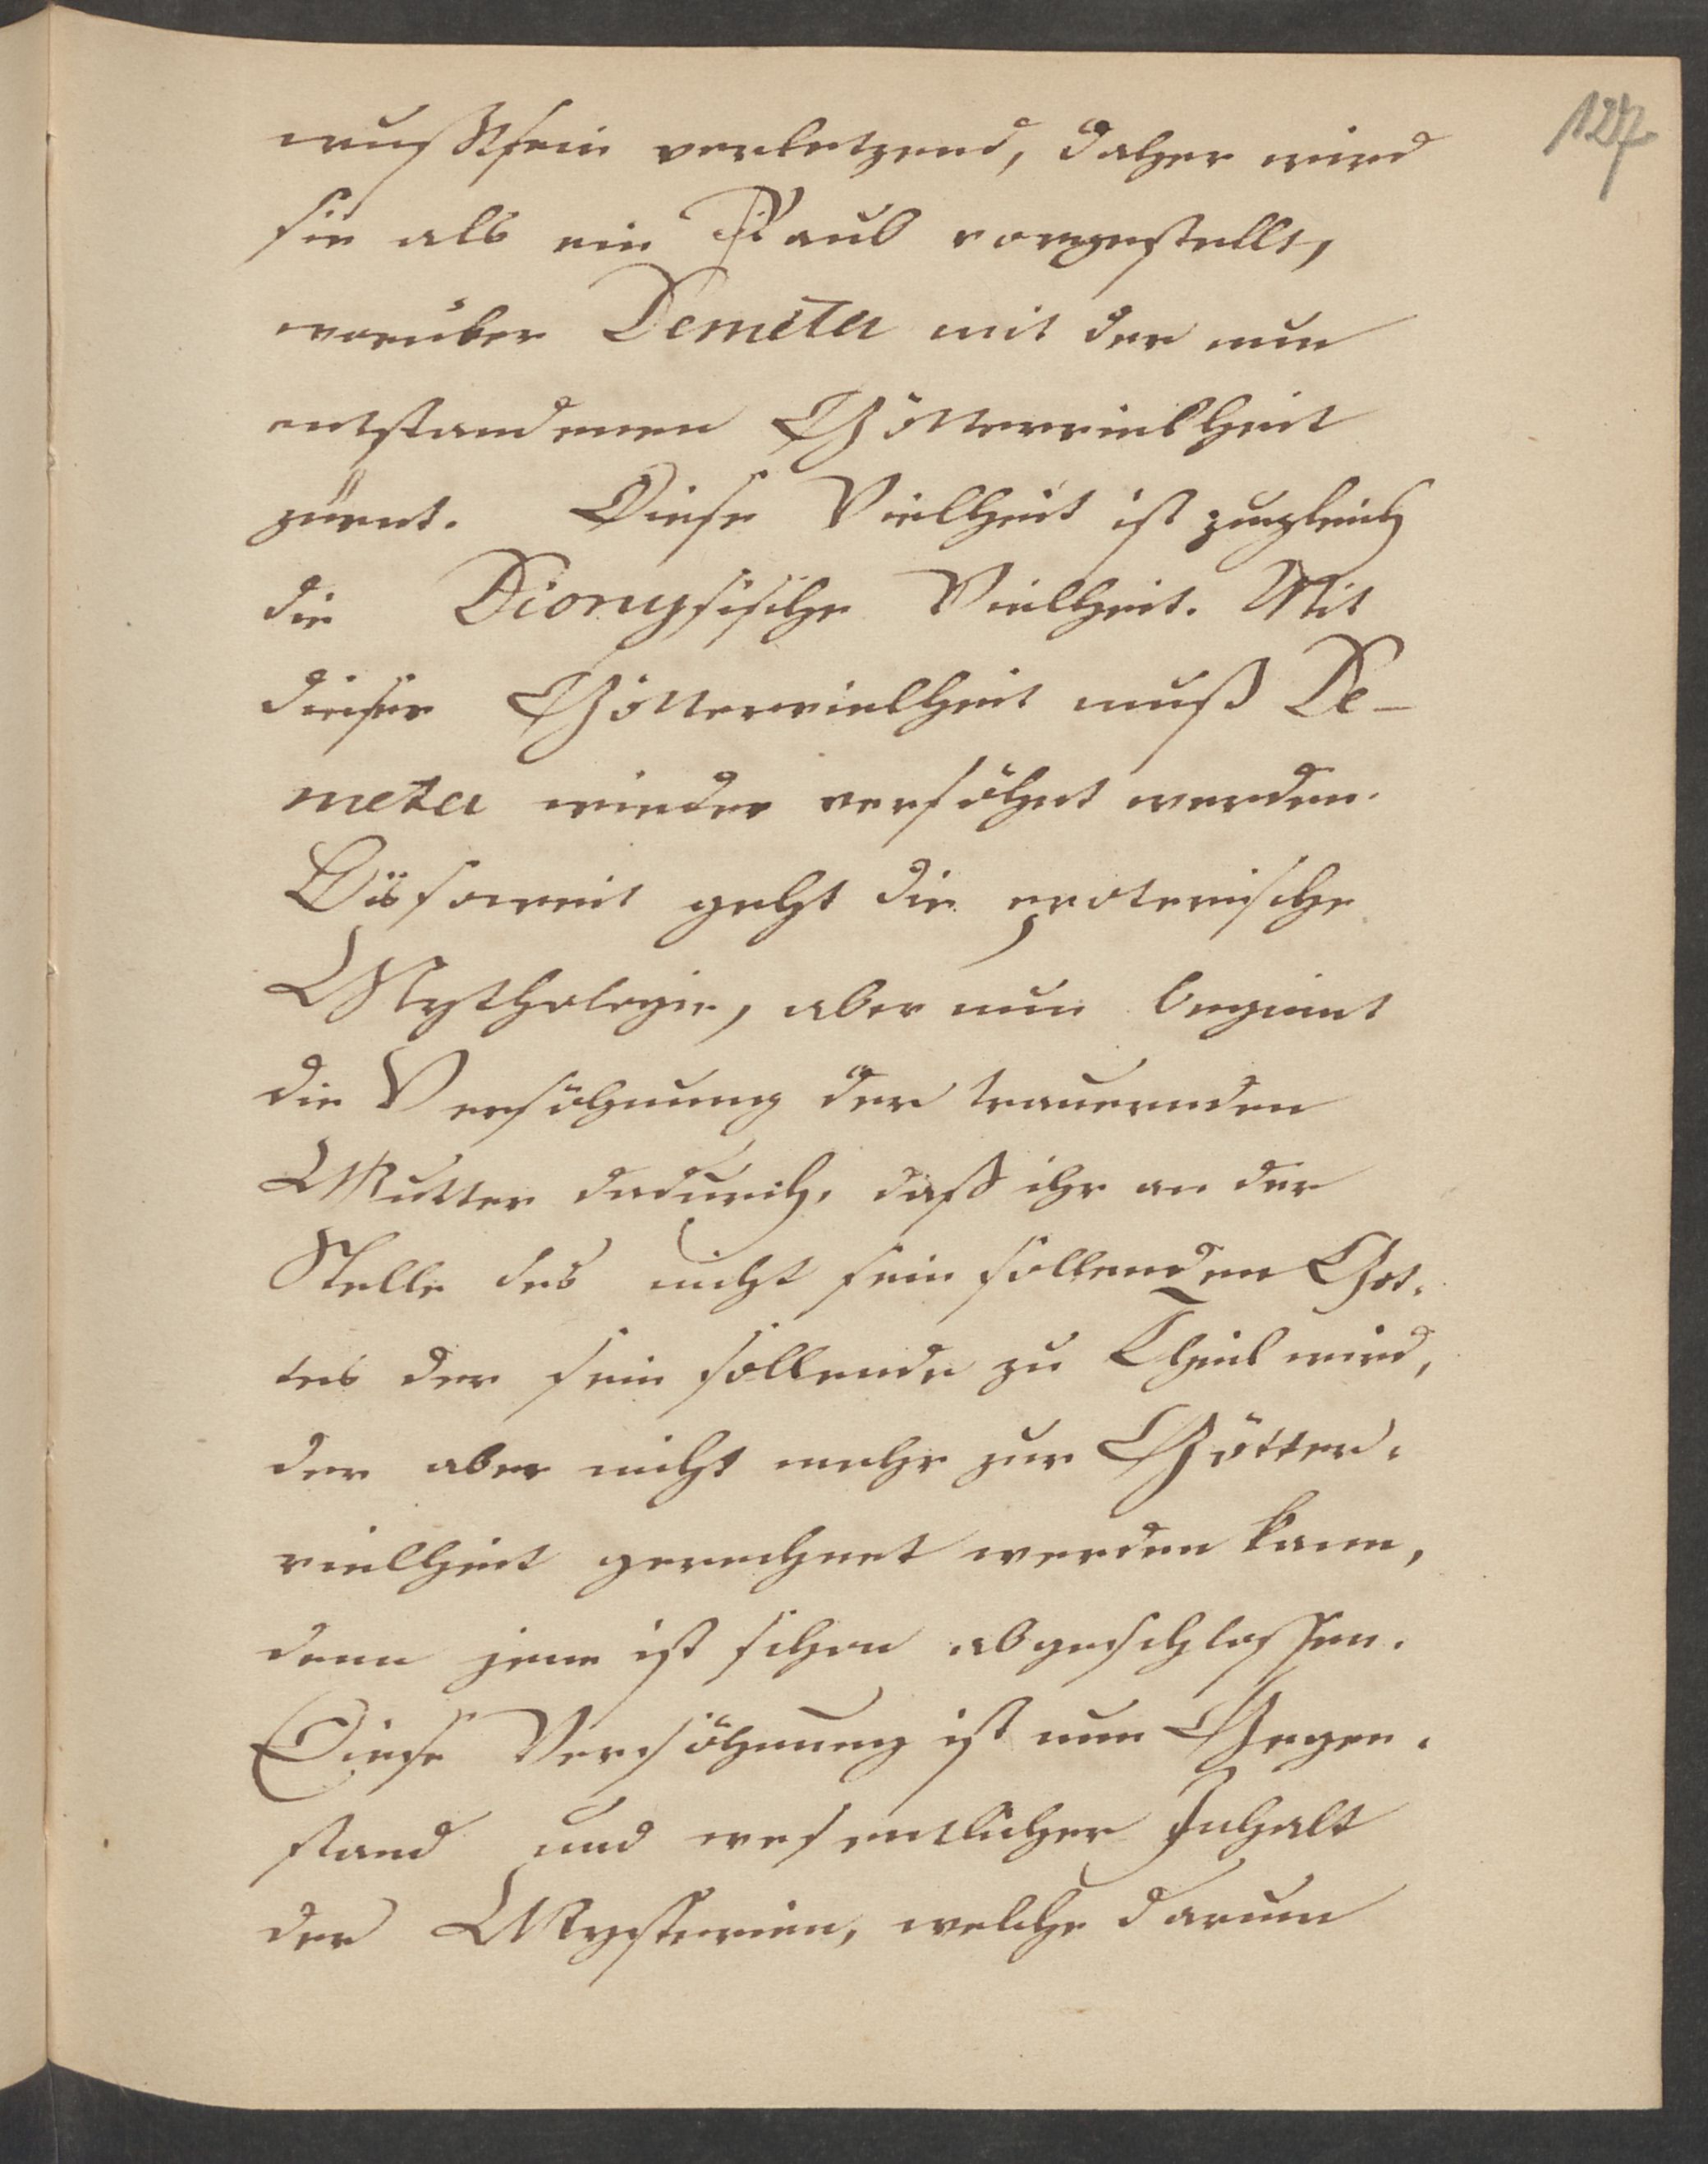 127
wußtsein verletzend, daher wird
sie als ein Raub vorgestellt,
worüber Demeter mit der nun
entstandenen Göttervielheit
zürnt. Diese Vielheit ist zugleich
die Dionysische Vielheit. Mit
dieser Göttervielheit muß De-
meter wieder versöhnt werden.
Bis soweit geht die exoterische
Mythologie, aber nun beginnt
die Versöhnung der trauernden
Mutter dadurch, daß ihr an der
Stelle des nicht sein sollenden Got-
tes der sein sollende zu Theil wird,
der aber nicht mehr zur Götter-
vielheit gerechnet werden kann,
denn jene ist schon abgeschlossen.
Diese Versöhnung ist nun Gegen-
stand und wesentlicher Inhalt
der Mysterien, welche darum